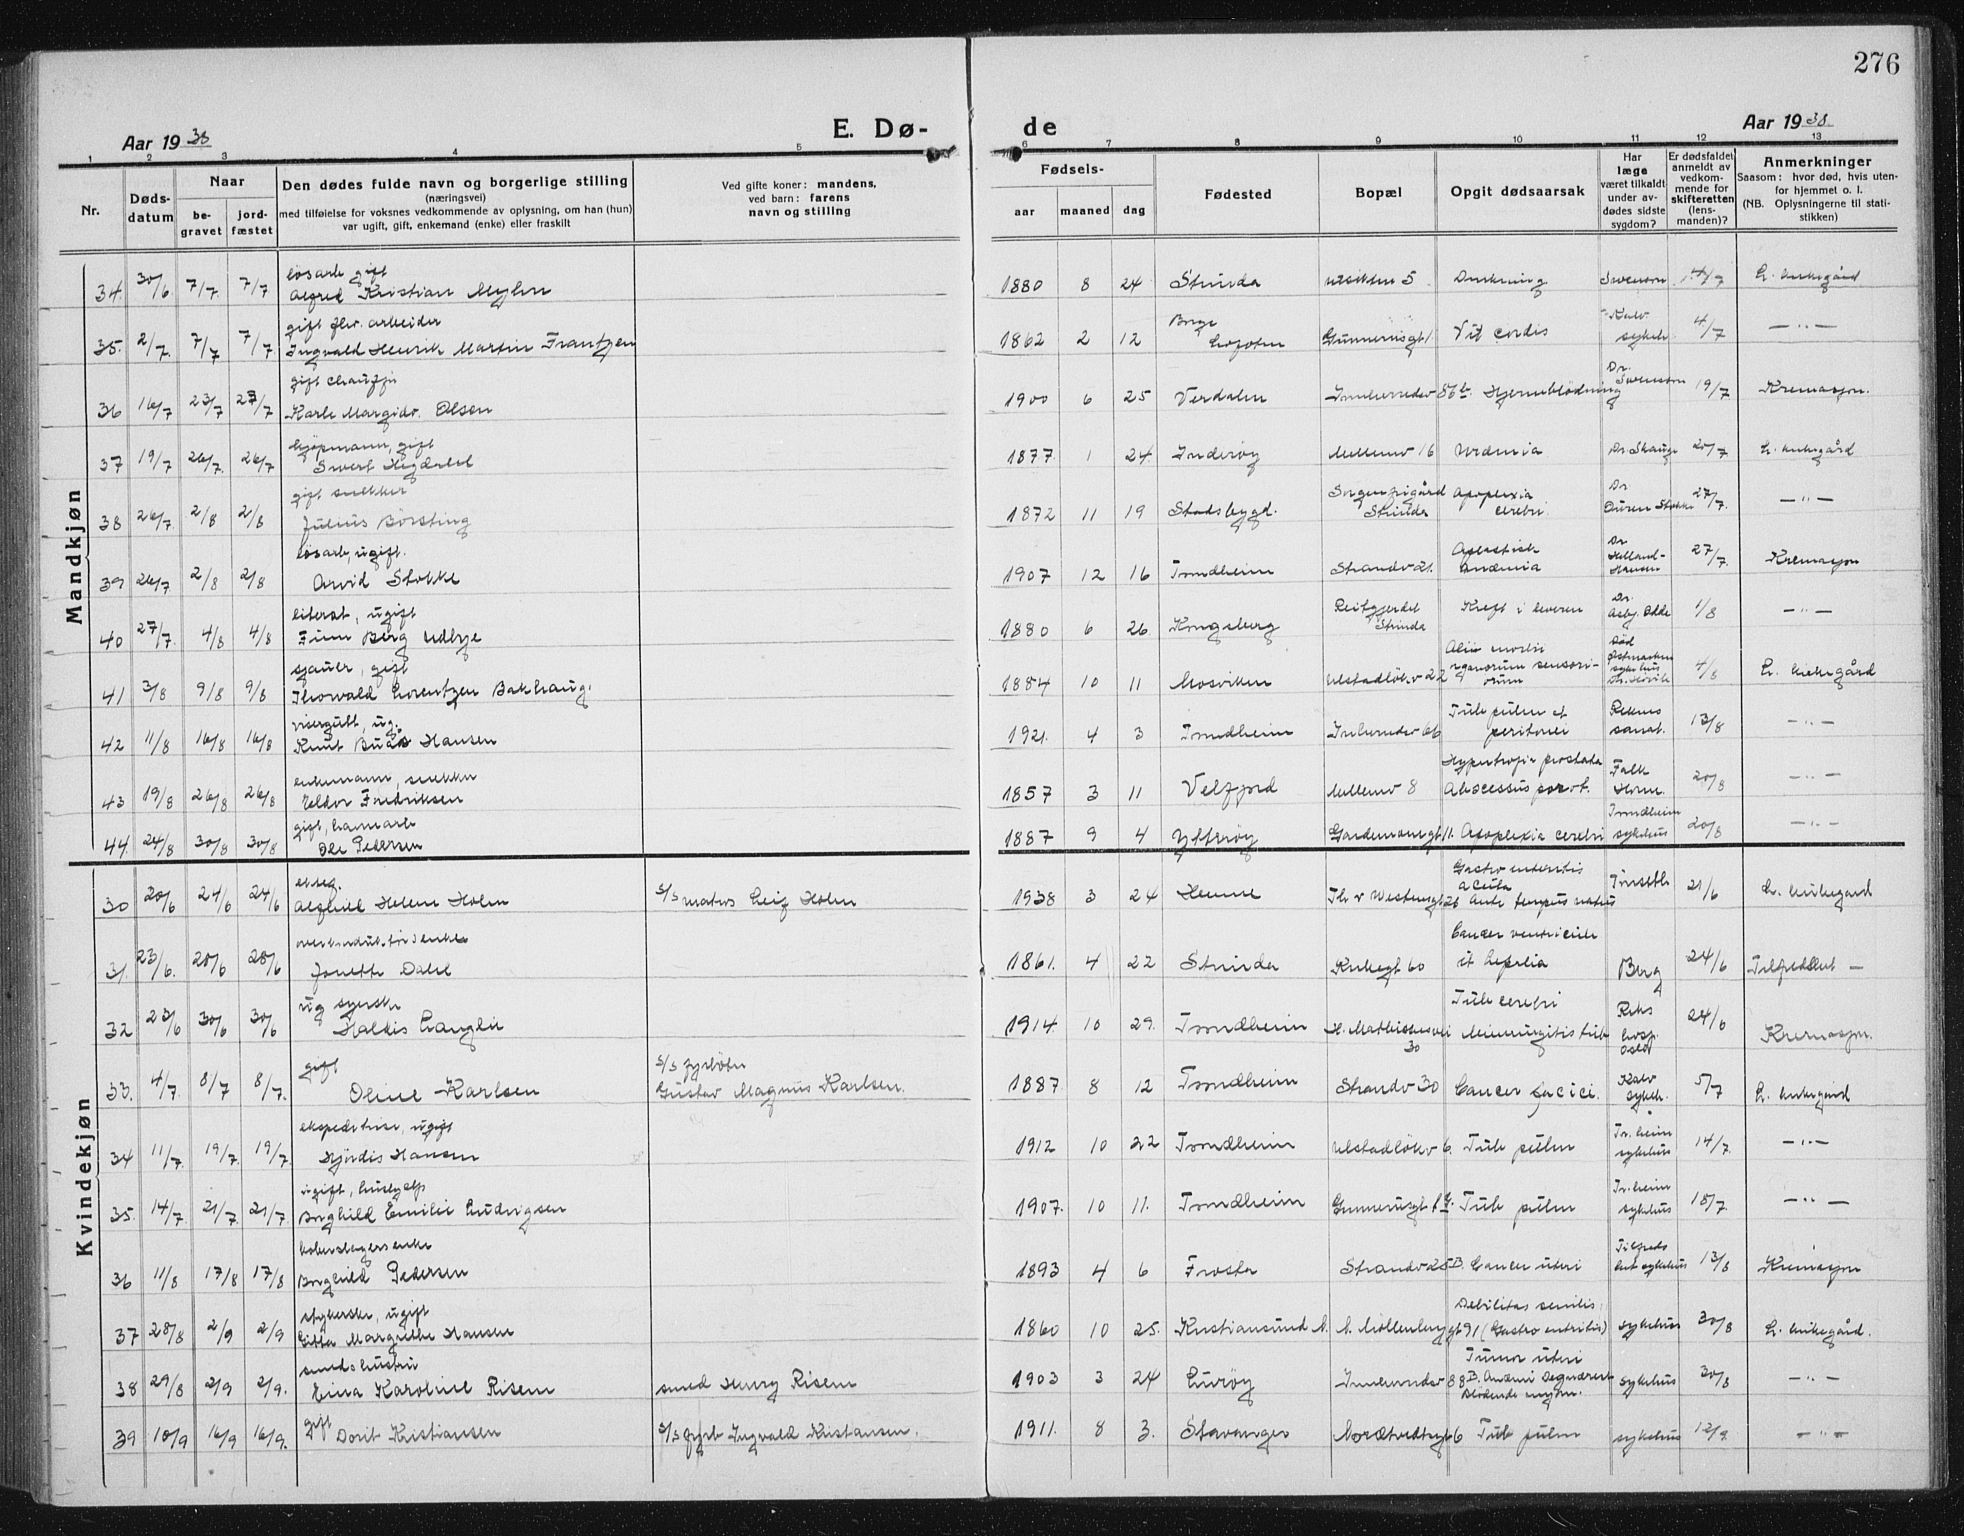 276
Aar 1938
E. Dø-
de
Aar 1938
1 2 3 4 5 6 7 8 9 10 11 12 13
Nr.
Døds-
datum
Naar
be-
gravet
jord-
fæstet
Den dødes fulde navn og borgerlige stilling
(næringsvei)
med tilføielse for voksnes vedkommende av oplysning, om han (hun)
var ugift, gift, enkemand (enke) eller fraskilt
Ved gifte koner: mandens,
ved barn: farens
navn og stilling
Fødsels-
aar maaned dag
Fødested
Bopæl
Opgit dødsaarsak
Har
læge
været tilkaldt
under av-
dødes sidste
sygdom?
Er dødsfaldet
anmeldt av
vedkom-
mende for
skifteretten
(lens-
manden)?
Anmerkninger
Saasom: hvor død, hvis uten-
for hjemmet o. l.
(NB. Oplysningerne til stati-
stikken)
Mandkjøn
løsarb gift
34. 30/6 7/7. 7/7 Alfred Kristian Myhre 1880 8 24 Strinda Utsikten 5 Drukning 4/7 L. kirkegård
gift flv. arbeider
35. 2/7. 7/7 7/7 Ingvald Henrik Martin Frantzen 1862 2 12 Borge Lofoten Gunnerusgt 1. Vit cordis sykeh. 4/7 — " —
gift chauffør
36 16/7 23/7 23/7 Karle Margido. Olsen 1900 6 25 Verdalen Innherredsv 86b. Hjerneblödning Dr. Svensson 19/7 Kremasjon.
kjøpmann, gift
37 19/7 26/7. 26/7 Sivert 1877 1 24 Inderøy Mellemv 16 Uremia Dr. Skauge 20/7 L. kirkegård
gift snekker
38 26/7 2/8 2/8 Julius Börsting 1872 11 19 Stadsbygd. Sorgenfrigård Strinda Apoplexia cerebri Dr 27/7. — " —
løsarb, ugift.
39 26/7 2/8 2/8 Arvid Stokke 1907 12 16 Trondheim Strandv 21. Aplastisk anæmia Dr Helland-Hansen 27/7. Kremasjon
literat, ugift
40 27/7. 4/8 4/8 Finn Berg Udbye 1880 6 26 Kongsberg Reitgjerdet Strinda Kreft i leveren Dr. Asbj. Odde 1/8 — " —
sjauer, gift
41 3/8 9/8 9/8 Thorvald Lorentzen Bakhaug. 1884 10 11 Mosviken Ulstadløkv 22 Alii morbi organorum sensoriorum Død Østmarken sykehus 4/8 L. kirkegård
visergutt, ug.
42 11/8 16/8 16/8 Knut Buås Hansen 1921. 4 3 Trondheim Inherredsv 66 Tub pulm et peritonei Reknes sanat. 13/8 — " —
enkemann, snekker
43 19/8 26/8 26/8 Eldor Fredriksen 1857 3 11 Velfjord Mellemv 8 Hypertrofia prostata Abscessus parot. Falk Horne. 20/8 — " —
gift, havnearb
44. 24/8 30/8 30/8 Ole Pedersen 1887 9 4 Ytterøy Gardemoensgt 11. Apoplexia cerebri Trondheim sykehus 20/8 — " —
Kvindekjøn
30 20/6 24/6 24/6 Alfhild Helene Holm s/s matros Leif Holm 1938 3 24 Hemne Th. v Westensgt 28 Gastro enteritis acuta Ante tempus natus 21/6 L. kirkegard
31. 23/6. 28/6 28/6 Jonette Dahl 1861. 4 22 Strinda Kirkegt 60 Cancer ventriculi Berg 24/6 —
ug syerske
32 23/6 30/6 30/6 Haldis Langlie 1914. 10 29. Trondheim H. Mathiesensvei 30 Tub cerebri Meningitis tub Riks hosp. Oslo 24/6 Kremasjon.
gift
33. 4/7. 8/7 8/7. Oline Karlsen s/s fyrbøter Gustav Magnus Karlsen. 1887 8 12 Trondheim Strandv 30 Cancer faciei. sykeh. 5/7 L. kirkegard
ekspeditrise, ugift
34 11/7. 19/7. 19/7. Hjördis Hansen 1912 10 22 Trondheim Ulstadløkv 6. Tub pulm Tr. heim sykehus 14/7. — " —
ugift, hushjelp
35. 14/7 21/7. 21/7. Borghild Emilie Ludvigsen 1907. 10 11. Trondheim Gunnerusgt Tub pulm Tr. heim sykehus 18/7. — " —
kobberslagers enke
36 11/8 17/8 17/8 Borghild Pedersen 1893 4 6 Frosta Strandv 25 B. Cancer uteri sykehus 13/8 Kremasjon
strykerske, ugift
37 28/8 2/9 2/9 Margrethe Hansen 1860 10 25. Kristiansund N. N. Möllenberggt 91 Debilitas senilis. (Gastro entritis) sykehus 30/8 L. kirkegård.
smedshustru
38 29/8 2/9 2/9. Eina Karoline Risem smed Henry Risem 1903 3 24 Lurøy Innherredsv 88 B. Tumor uteri sykehus 30/8 — " —
gift
39 10/9 16/9 16/9. Dorit Kristiansen s/s fyrb Ingvald Kristiansen. 1911. 8 3. Stavanger Nordtvedtsgt 6 Tub pulm sykehus 12/9. — " —